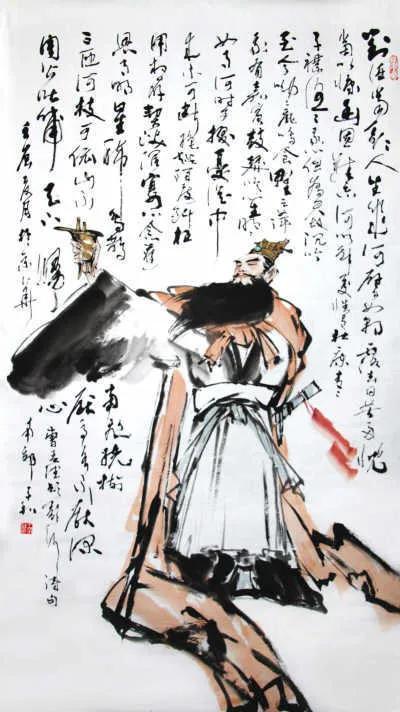 對酒當歌人生幾何譬如朝露去日苦多慨
當以慷幽思難忘何以解憂惟有杜康青々
子衿悠々我心但為君故沉吟
至今呦々鹿鳴食野之萍
我有嘉賓鼓瑟吹笙明々
如月何時可掇憂從中
來不可斷越陌度阡枉
用相存契闊談宴心念舊
恩月明星稀烏鵲
南飛繞樹
三匝何枝可依山不
厭高水不厭深
周公吐哺天下歸
心
曹孟德短歌行詩句
壬辰夏月於京華